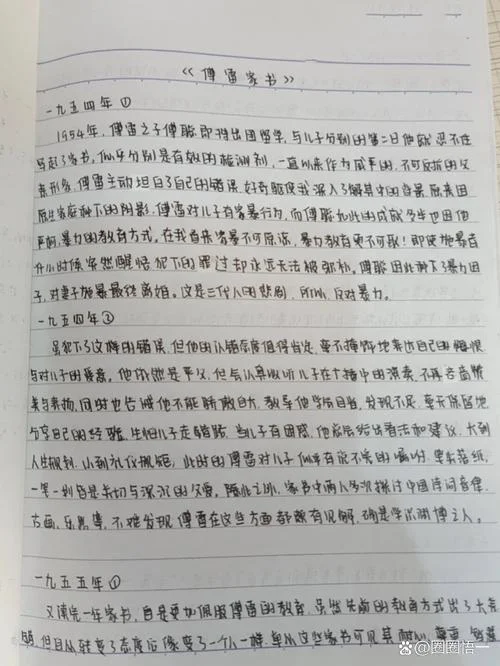 《傅雷家书》
一九五四年①
1954年，傅雷之子傅聪即将出国留学，与儿子分别的第二日他就忍不住
写起了家书，似乎分别是有效的检测剂，一直以来作为威严的，不可反抗的父
亲形象，傅雷主动坦白了自己的错误，好奇驱使我深入了解其中的背景，原来因
原生家庭种下的阴影，傅雷对儿子有家暴行为，而傅聪如此的成就多半也因他
严苛、暴力的教育方式，在我看来家暴不可原谅，暴力教育更不可取！即使施暴者
在某时候突然醒悟犯下的罪过却永远无法被弥补，傅聪因此种下了暴力因
子，对妻子施暴最终离婚。这是三代人的悲剧，所以，反对暴力。
一九五四年②
虽犯下了这样的错误，但他的认错态度值得肯定，毫不掩饰地表达自己的悔恨
与对儿子的爱意。他依然是严父，但会认真收听儿子在广播中的演奏，不再吝啬赞
美与表扬，同时也告诫他不能骄傲自大，教导他学会自省，发现不足，毫无保留地
分享自己的经验，生怕儿子走错路，当儿子有困惑，他总会给出看法和建议，大到
人生规划，小到礼仪规矩，此时的傅雷对儿子似乎有说不完的嘱咐，要东落纸，
一笔一划皆是关切与深沉的父爱。除此之外，家书中两人多次探讨中国诗词音律，
古画，乐器等，不难发现傅雷在这些方面都颇有见解，确是学识渊博之人。
一九五五年①
又读完一年家书，自是更加佩服傅雷的教育，虽然先前的教育方式出了大差
错，但自从转变了态度后像变了一个人一样，单从这些家书可见其耐心，尊重，
@圈圈悟一